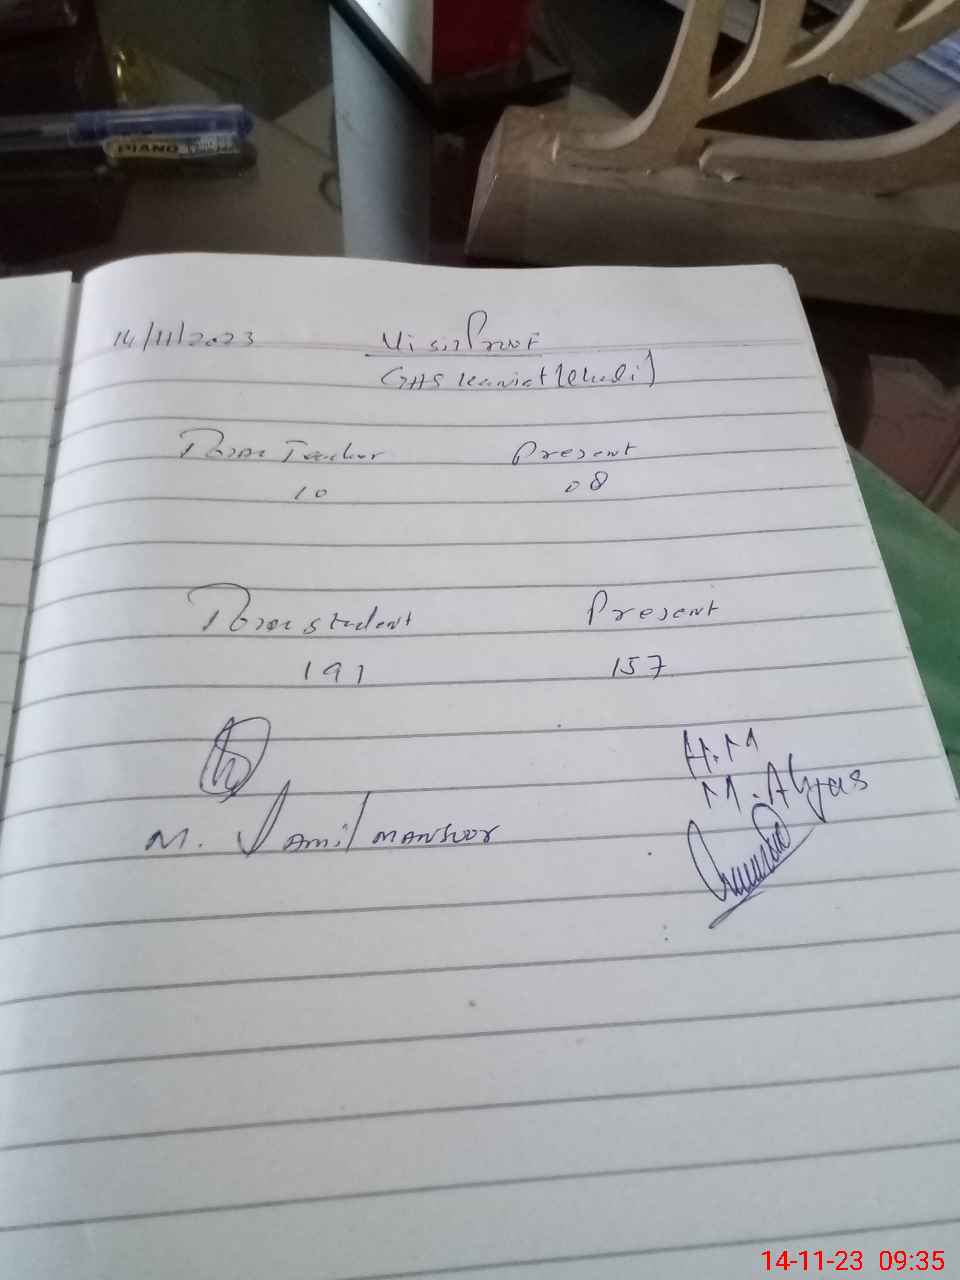 PIANO
14/11/2023 Visit Proof
GHS
Total Teacher Present
10 08
Total student Present
191 157
H.M
M. Alyas
M. Jamil MANSOOR
14-11-23 09:35